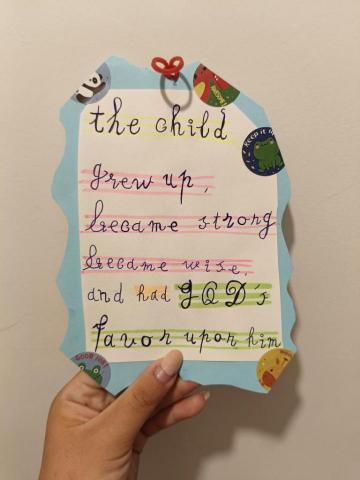 the child
grew up,
became strong
became wise,
and had GOD's
favor upon him
GOOD JOB!